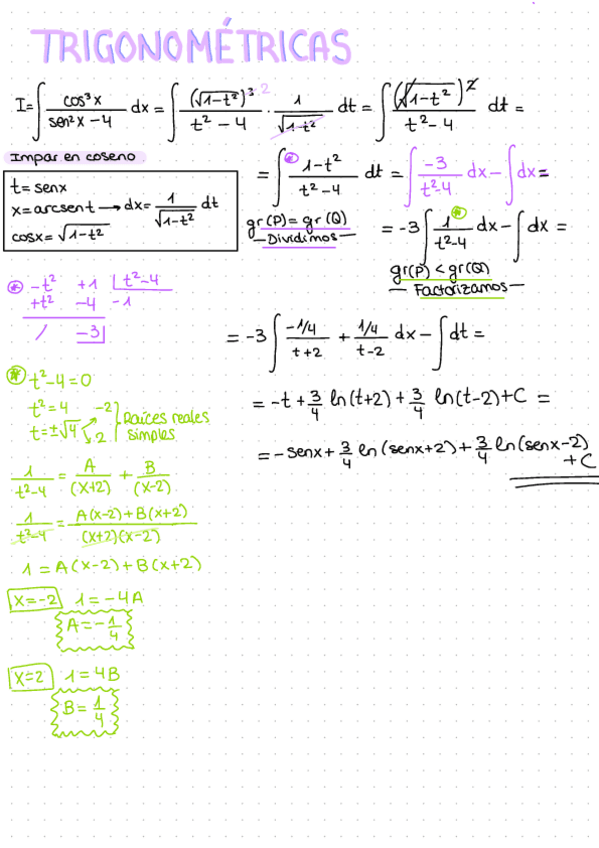 TRIGONOMÉTRICAS
I=∫ cos³x / sen²x-4 dx = ∫ (√1-t²)³ ² / t²-4 · 1/√1-t² dt = ∫ (√1-t²)² / t²-4 dt =
Impar en coseno.
t=senx
x=arcsent → dx= 1/√1-t² dt
cosx=√1-t²
= ∫ * 1-t² / t²-4 dt = ∫ -3/t²-4 dx - ∫dx =
gr(P)=gr(Q)
- Dividimos -
= -3 ∫ 1*/t²-4 dx - ∫ dx =
gr(P)<gr(Q)
- Factorizamos -
* -t² +1 | t²-4
+t² -4 -1
/ -3
= -3 ∫ -1/4 / t+2 + 1/4 / t-2 dx - ∫ dt =
= -t + 3/4 ln(t+2) + 3/4 ln(t-2) + C =
= -senx + 3/4 ln(senx+2) + 3/4 ln(senx-2) + C
* t²-4=0
t²=4 -2
t=±√4 2
Raíces reales
simples
1/t²-4 = A/(x+2) + B/(x-2)
1/t²-4 = A(x-2)+B(x+2) / (x+2)(x-2)
1 = A(x-2)+B(x+2)
x=-2 1=-4A
A=-1/4
x=2 1=4B
B=1/4